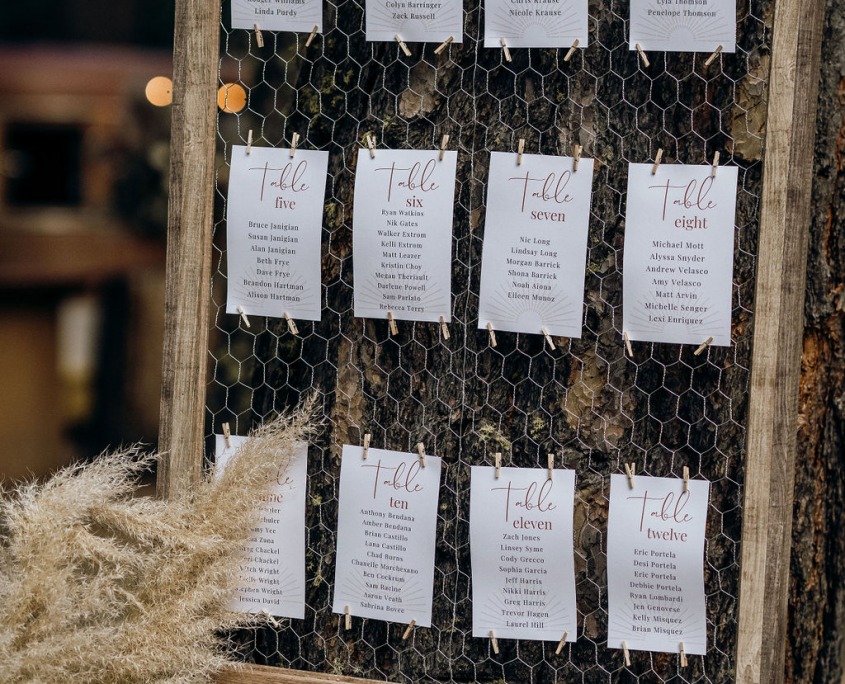 Linda Purdy
Colyn Barringer
Zack Russell
Chris Krause
Nicole Krause
Lyla Thomson
Penelope Thomson
Table
five
Bruce Janigian
Susan Janigian
Alan Janigian
Beth Frye
Dave Frye
Brandon Hartman
Alison Hartman
Table
six
Ryan Watkins
Nik Gates
Walker Extrom
Kelli Extrom
Matt Leazer
Kristin Choy
Megan Theriault
Darlene Powell
Sam Parlato
Rebecca Terry
Table
seven
Nic Long
Lindsay Long
Morgan Barrick
Shona Barrick
Noah Aioua
Eileen Munoz
Table
eight
Michael Mott
Alyssa Snyder
Andrew Velasco
Amy Velasco
Matt Arvin
Michelle Senger
Lexi Enriquez
Table
Wright
Wright
Wright
Jessica David
Table
ten
Anthony Bendana
Amber Bendana
Brian Castillo
Lana Castillo
Chad Burns
Chanelle Marchesano
Ben Cockrum
Sam Racine
Aaron Veath
Sabrina Bovee
Table
eleven
Zach Jones
Linsey Syme
Cody Grecco
Sophia Garcia
Jeff Harris
Nikki Harris
Greg Harris
Trevor Hagen
Laurel Hill
Table
twelve
Eric Portela
Desi Portela
Eric Portela
Debbie Portela
Ryan Lombardi
Jen Genovese
Kelly Misquez
Brian Misquez